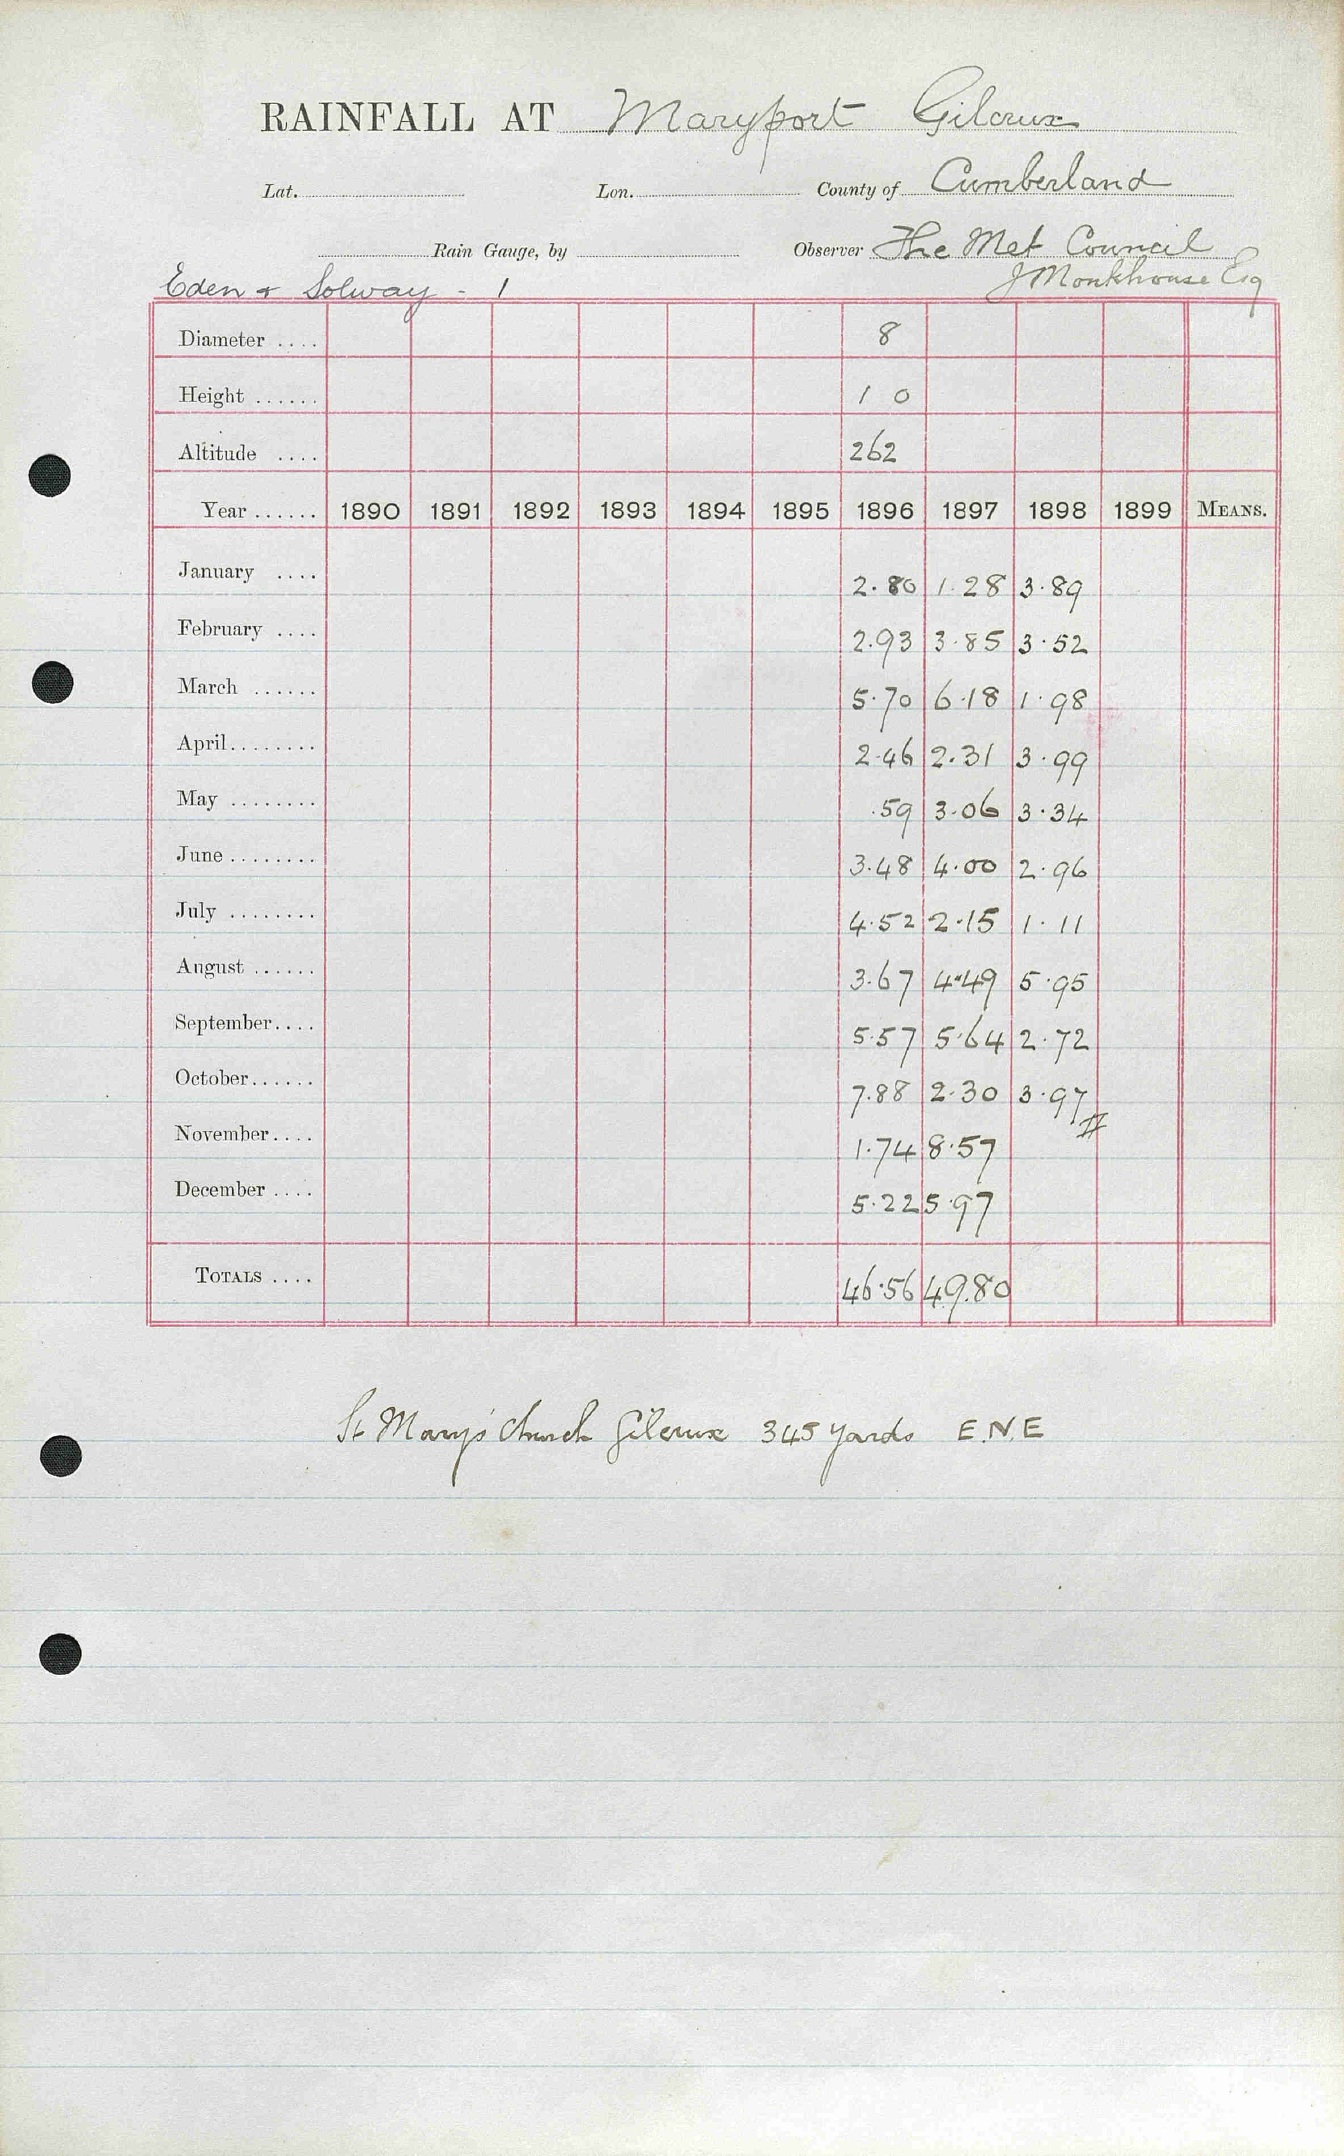 RAINFALL AT Maryport Gilcrux
Lat. Lon. County of Cumberland
Rain Gauge, by Observer The Met Council
Eden & Solway - 1 J Monkhouse Esq
Diameter .... 8
Height ...... 1 0
Altitude .... 262
Year ...... 1890 1891 1892 1893 1894 1895 1896 1897 1898 1899 MEANS.
January .... 2.80 1.28 3.89
February .... 2.93 3.85 3.52
March ...... 5.70 6.18 1.98
April ........ 2.46 2.31 3.99
May ........ .59 3.06 3.34
June ........ 3.48 4.00 2.96
July ........ 4.52 2.15 1.11
August ...... 3.67 4.49 5.95
September .... 5.57 5.64 2.72
October ...... 7.88 2.30 3.97
November .... 1.74 8.57 #
December .... 5.22 5.97
TOTALS .... 46.56 49.80
St Mary's Church Gilcrux 345 yards E.N.E